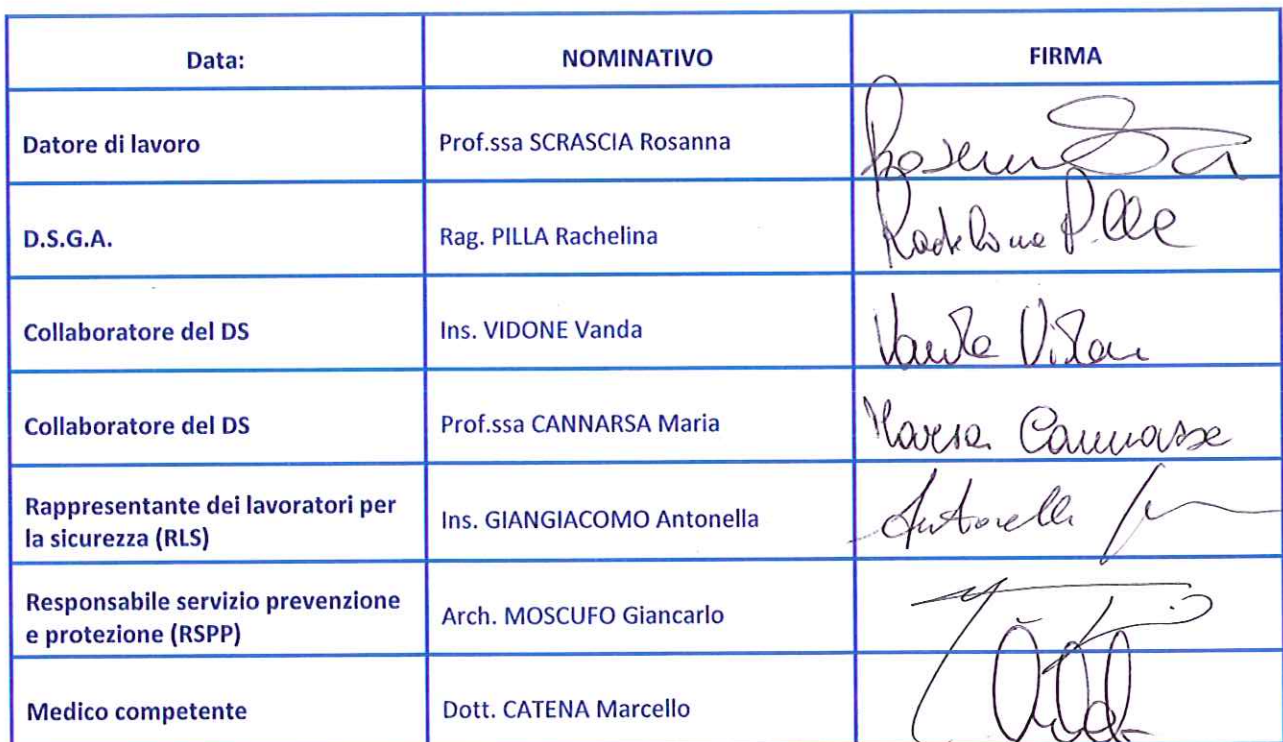 Data: NOMINATIVO FIRMA
Datore di lavoro Prof.ssa SCRASCIA Rosanna
D.S.G.A. Rag. PILLA Rachelina Rachelina Pilla
Collaboratore del DS Ins. VIDONE Vanda Vanda Vidone
Collaboratore del DS Prof.ssa CANNARSA Maria Maria Cannarsa
Rappresentante dei lavoratori per
la sicurezza (RLS) Ins. GIANGIACOMO Antonella Antonella
Responsabile servizio prevenzione
e protezione (RSPP) Arch. MOSCUFO Giancarlo
Medico competente Dott. CATENA Marcello